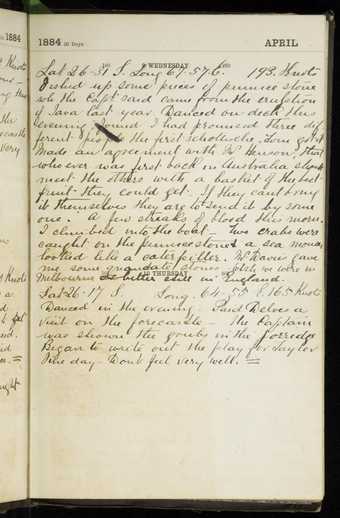 1884 30 Days APRIL
9 WEDNESDAY
Lat 26.31 S. Long 67.57 E. 193. Knots
Fished up some pieces of pumice stone
wh the Capt said came from the eruption
of Java last year. Danced on deck this
evening found I had promised three
the first schottische
Made an agreement with Mr that
who ever was first back in Australia shd
meet the others with a basket of the best
fruit they could get. If they cant bring
it themselves they are to send it by some
one. A few streaks of blood this morn.
I climbed into the boat — Two crabs were
caught on the pumice stone & a sea mouse
looked like a caterpiller. Mr Davies gave
me some stones wish we were in
Melbourne or better still in England.
10 THURSDAY
Lat 26.17 S. Long. 64.55 E. 165 Knots
Danced in the evening. Paid a
visit on the forecastle — The Captain
was shown the grubs in the porridge
Began to write out the play for Taylor
Fine day — Dont feel very well. =